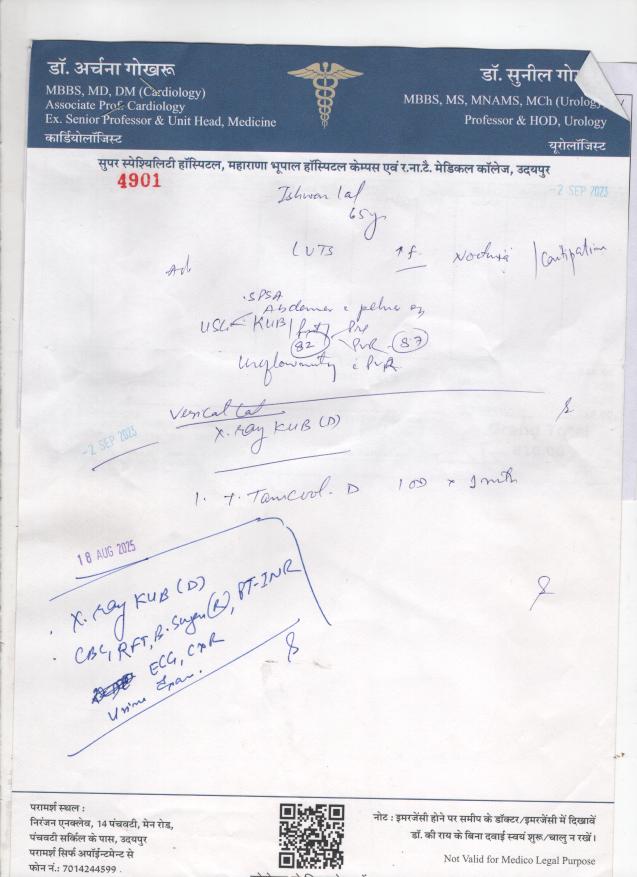 डॉ. अर्चना गोखरू
MBBS, MD, DM (Cardiology)
Associate Prof. Cardiology
Ex. Senior Professor & Unit Head, Medicine
कार्डियोलॉजिस्ट
डॉ. सुनील गो
MBBS, MS, MNAMS, MCh (Urology)
Professor & HOD, Urology
यूरोलॉजिस्ट
सुपर स्पेश्यिलिटी हॉस्पिटल, महाराणा भूपाल हॉस्पिटल केम्पस एवं र.ना.टै. मेडिकल कॉलेज, उदयपुर
4901
-2 SEP 2023
Ishwar lal
65y
LUTS ↑f. Nocturia /
Ad
SPSA
USG KUB/
Pre
82 PVR 87
Uroflowmetry c PVR
-2 SEP 2023
X-ray KUB (D)
1. T. Tamcool-D 1OD x 1 mth
18 AUG 2025
X-ray KUB (D)
CBC, RFT, B. Sugar (R), PT-INR
ECG, CXR
Urine Exam.
परामर्श स्थल :
निरंजन एनक्लेव, 14 पंचवटी, मेन रोड,
पंचवटी सर्किल के पास, उदयपुर
परामर्श सिर्फ अपॉईन्टमेन्ट से
फोन नं.: 7014244599
नोट : इमरजेंसी होने पर समीप के डॉक्टर/इमरजेंसी में दिखावें
डॉ. की राय के बिना दवाई स्वयं शुरू/चालु न रखें।
Not Valid for Medico Legal Purpose